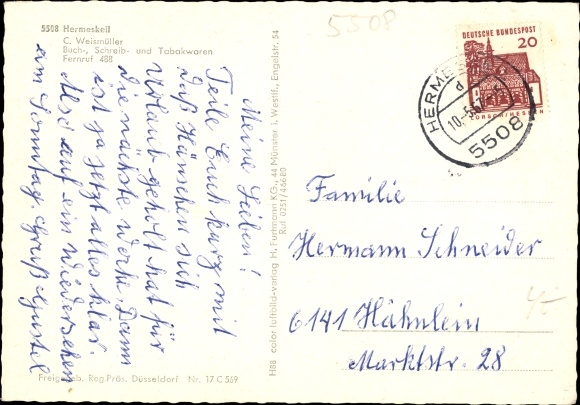 5508 Hermeskeil
C. Weismüller
Buch-, Schreib- und Tabakwaren
Fernruf 488
Meine Lieben!
Teile Euch kurz mit
daß Hänschen sich
Urlaub geholt hat für
die nächste Woche. Dann
ist ja jetzt alles klar.
Also auf ein Wiedersehen
am Sonntag Gruß Gustel
Freigeb. Reg. Präs. Düsseldorf Nr. 17 C 569
H88 color luftbild-verlag H. Fuhrmann KG., 44 Münster i. Westf., Engelstr. 54
Ruf 0251/46680
5508
DEUTSCHE BUNDESPOST
20
LORSCH/HESSEN
HERMES
d
10.-5.67
5508
Familie
Hermann Schneider
6141 Hähnlein
Marktstr. 28
4,-